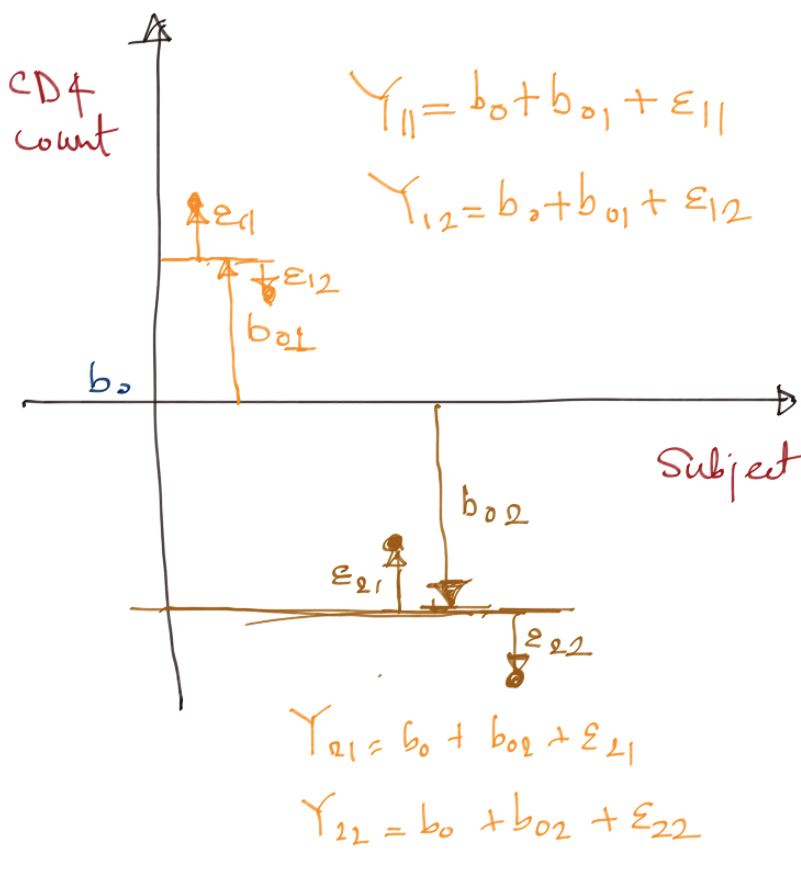 CD4
count
Y₁₁ = b₀ + b₀₁ + ε₁₁
Y₁₂ = b₀ + b₀₁ + ε₁₂
ε₁₁
ε₁₂
b₀₁
b₀
Subject
b₀₂
ε₂₁
ε₂₂
Y₂₁ = b₀ + b₀₂ + ε₂₁
Y₂₂ = b₀ + b₀₂ + ε₂₂